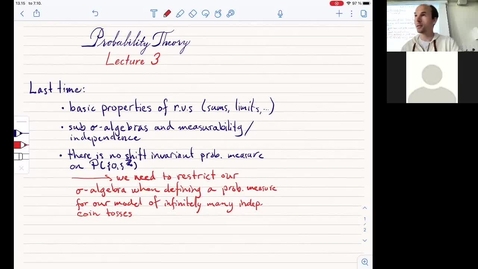 13.15 to 7.10.
87 %
Probability Theory
Lecture 3
Last time:
• basic properties of r.v.s (sums, limits,...)
• sub σ-algebras and measurability/
independence
• there is no shift invariant prob. measure
on P({0,1}^ℤ)
→ we need to restrict our
σ-algebra when defining a prob. measure
for our model of infinitely many indep.
coin tosses